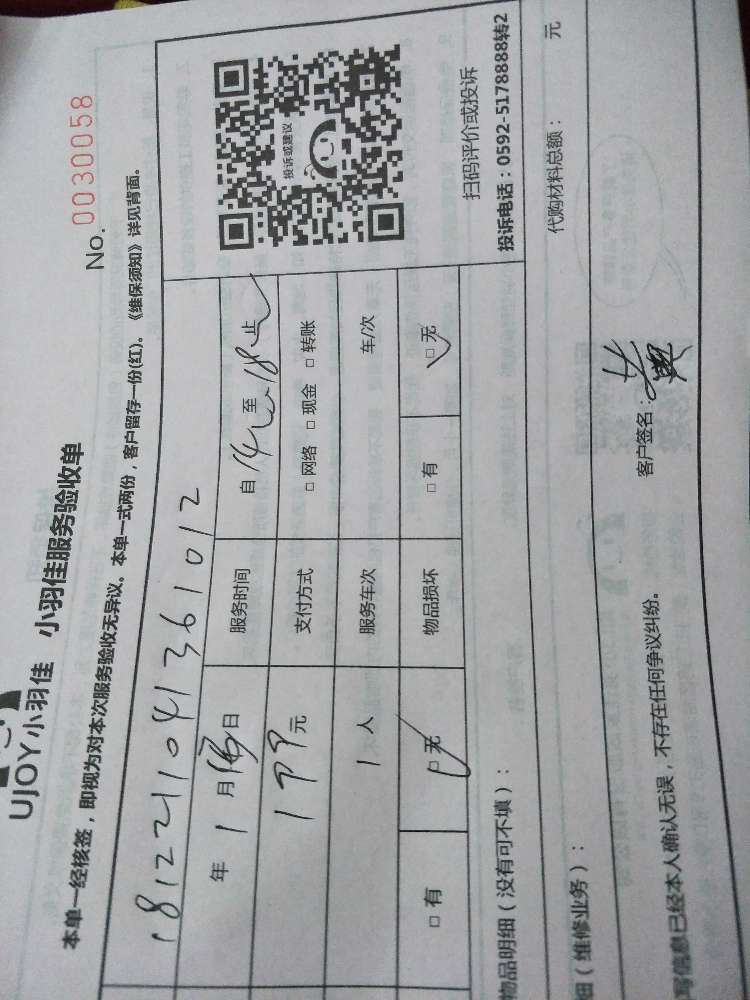 UJOY小羽佳 小羽佳服务验收单
No. 0030058
本单一经核签，即视为对本次服务验收无异议。本单一式两份，客户留存一份(红)。《维保须知》详见背面。
1812211041361012
年 1 月 日 服务时间 自 14 至 18 止
199 元 支付方式 □ 网络 □ 现金 □ 转账
1 人 服务车次 车/次
□ 有 □ 无 物品损坏 □ 有 □ 无
投诉或建议
扫码评价或投诉
投诉电话：0592-5178888转2
物品明细（没有可不填）：
细（维修业务）： 代购材料总额： 元
写信息已经本人确认无误，不存在任何争议纠纷。 客户签名：